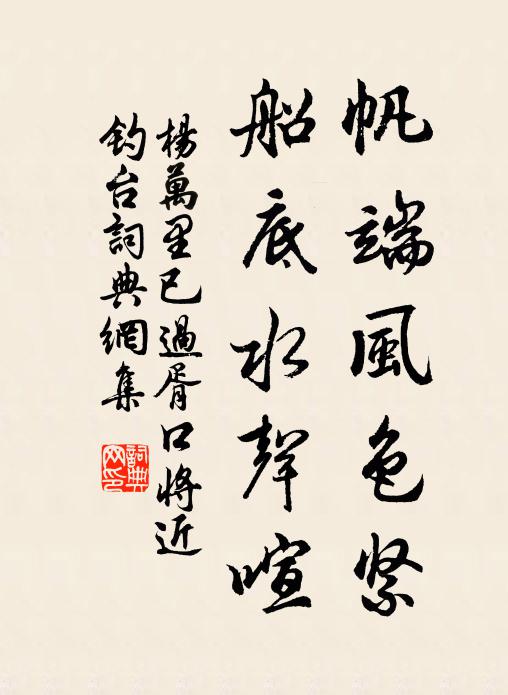 帆端風色緊
船底水聲喧
楊萬里已過胥口將近
釣台詞典網集
詞典
网印